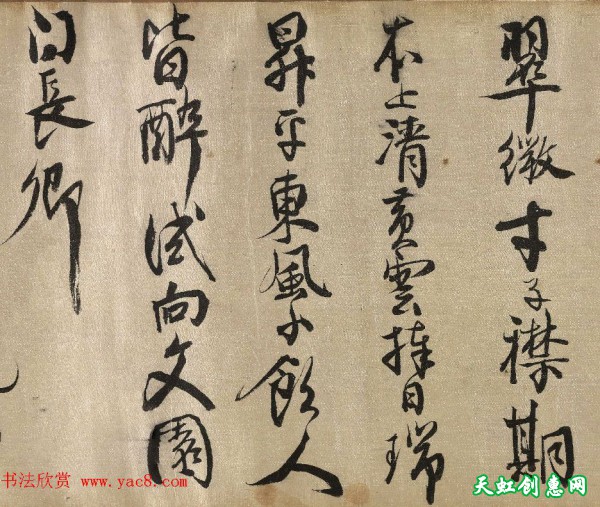 翠微才子襟期
本上清黃雲捧日瑞
昇平東風小飲人
皆醉試向文園
問長卿
书法欣赏 www.yac8.com
天虹创惠网